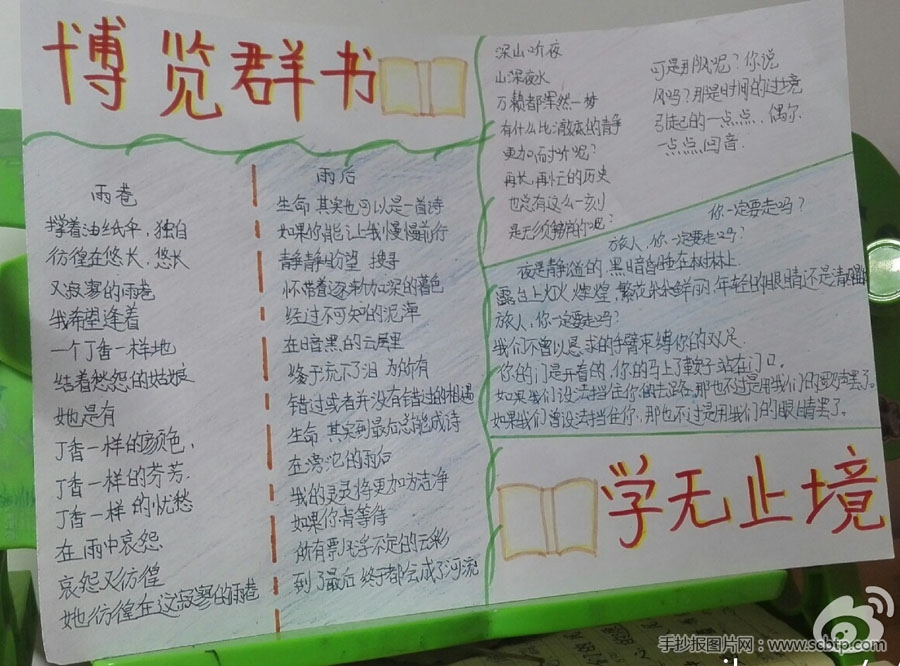 博览群书
雨巷
撑着油纸伞，独自
彷徨在悠长、悠长
又寂寥的雨巷
我希望逢着
一个丁香一样地
结着愁怨的姑娘
她是有
丁香一样的颜色，
丁香一样的芬芳，
丁香一样的忧愁
在雨中哀怨，
哀怨又彷徨
她彷徨在这寂寥的雨巷
雨后
生命 其实也可以是一首诗
如果你能让我慢慢前行
静静盼望 搜寻
怀带着逐渐加深的暮色
经过不可知的泥淖
在暗黑的云层里
终于流下了泪 为所有
错过或者并没有错过的相遇
生命 其实到最后总能成诗
在滂沱的雨后
我的灵灵将更加为洁净
如果你肯等待
所有飘浮不定的云彩
到了最后 终于都会成了河流
深山听夜
山深夜永
万籁都浑然一梦
有什么比澈底的静
更加耐听呢？
再长，再忙的历史
也总有这么一刻
是无须争辩的吧？
可是那风呢？你说
风吗？那是时间的过境
引起的一点点，偶尔
一点点，回音
你一定要走吗？
旅人，你一定要走吗？
夜是静谧的，黑暗昏睡在树林上
露台上火火煌煌，繁花朵朵鲜丽，年轻的眼睛还是清醒的
旅人，你一定要走吗？
我们不曾以恳求的手臂束缚你的双足
你的门是开着的，你的马上了鞍子站在门口
如果我们设法挡住你的去路，那也不过是用我们的歌声罢了。
如果我们曾设法挡住你，那也不过是用我们的眼睛罢了。
学无止境
手抄报图片网：www.scbtp.com